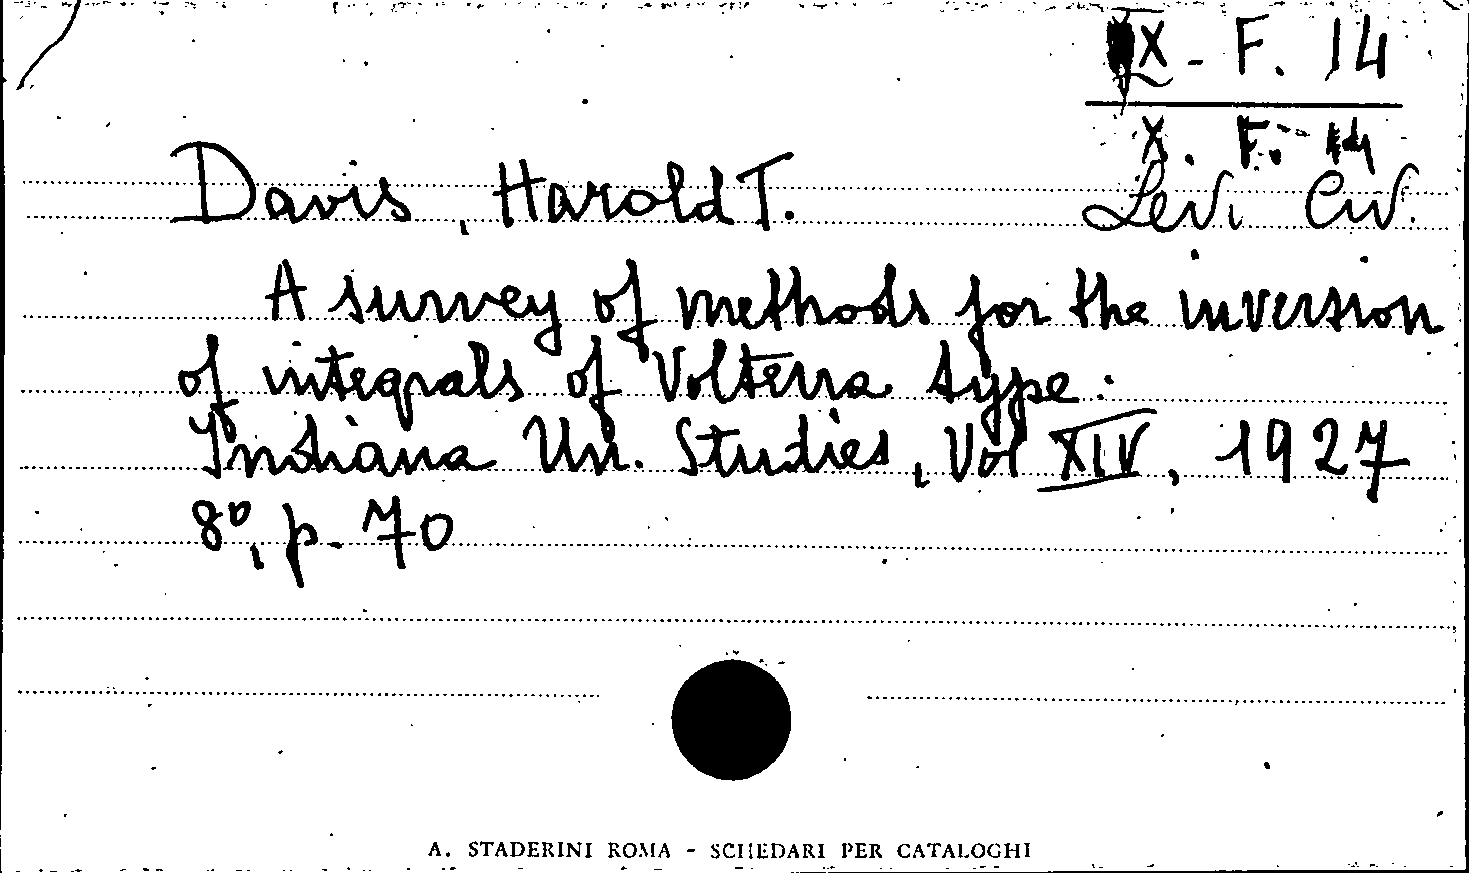 X - F. 14
X. F. 14
Davis, Harold T.
Levi Civ.
A survey of methods for the inversion
of integrals of Volterra type.
Indiana Un. Studies, Vol XIV, 1927
8°, p. 70
A. STADERINI ROMA - SCHEDARI PER CATALOGHI